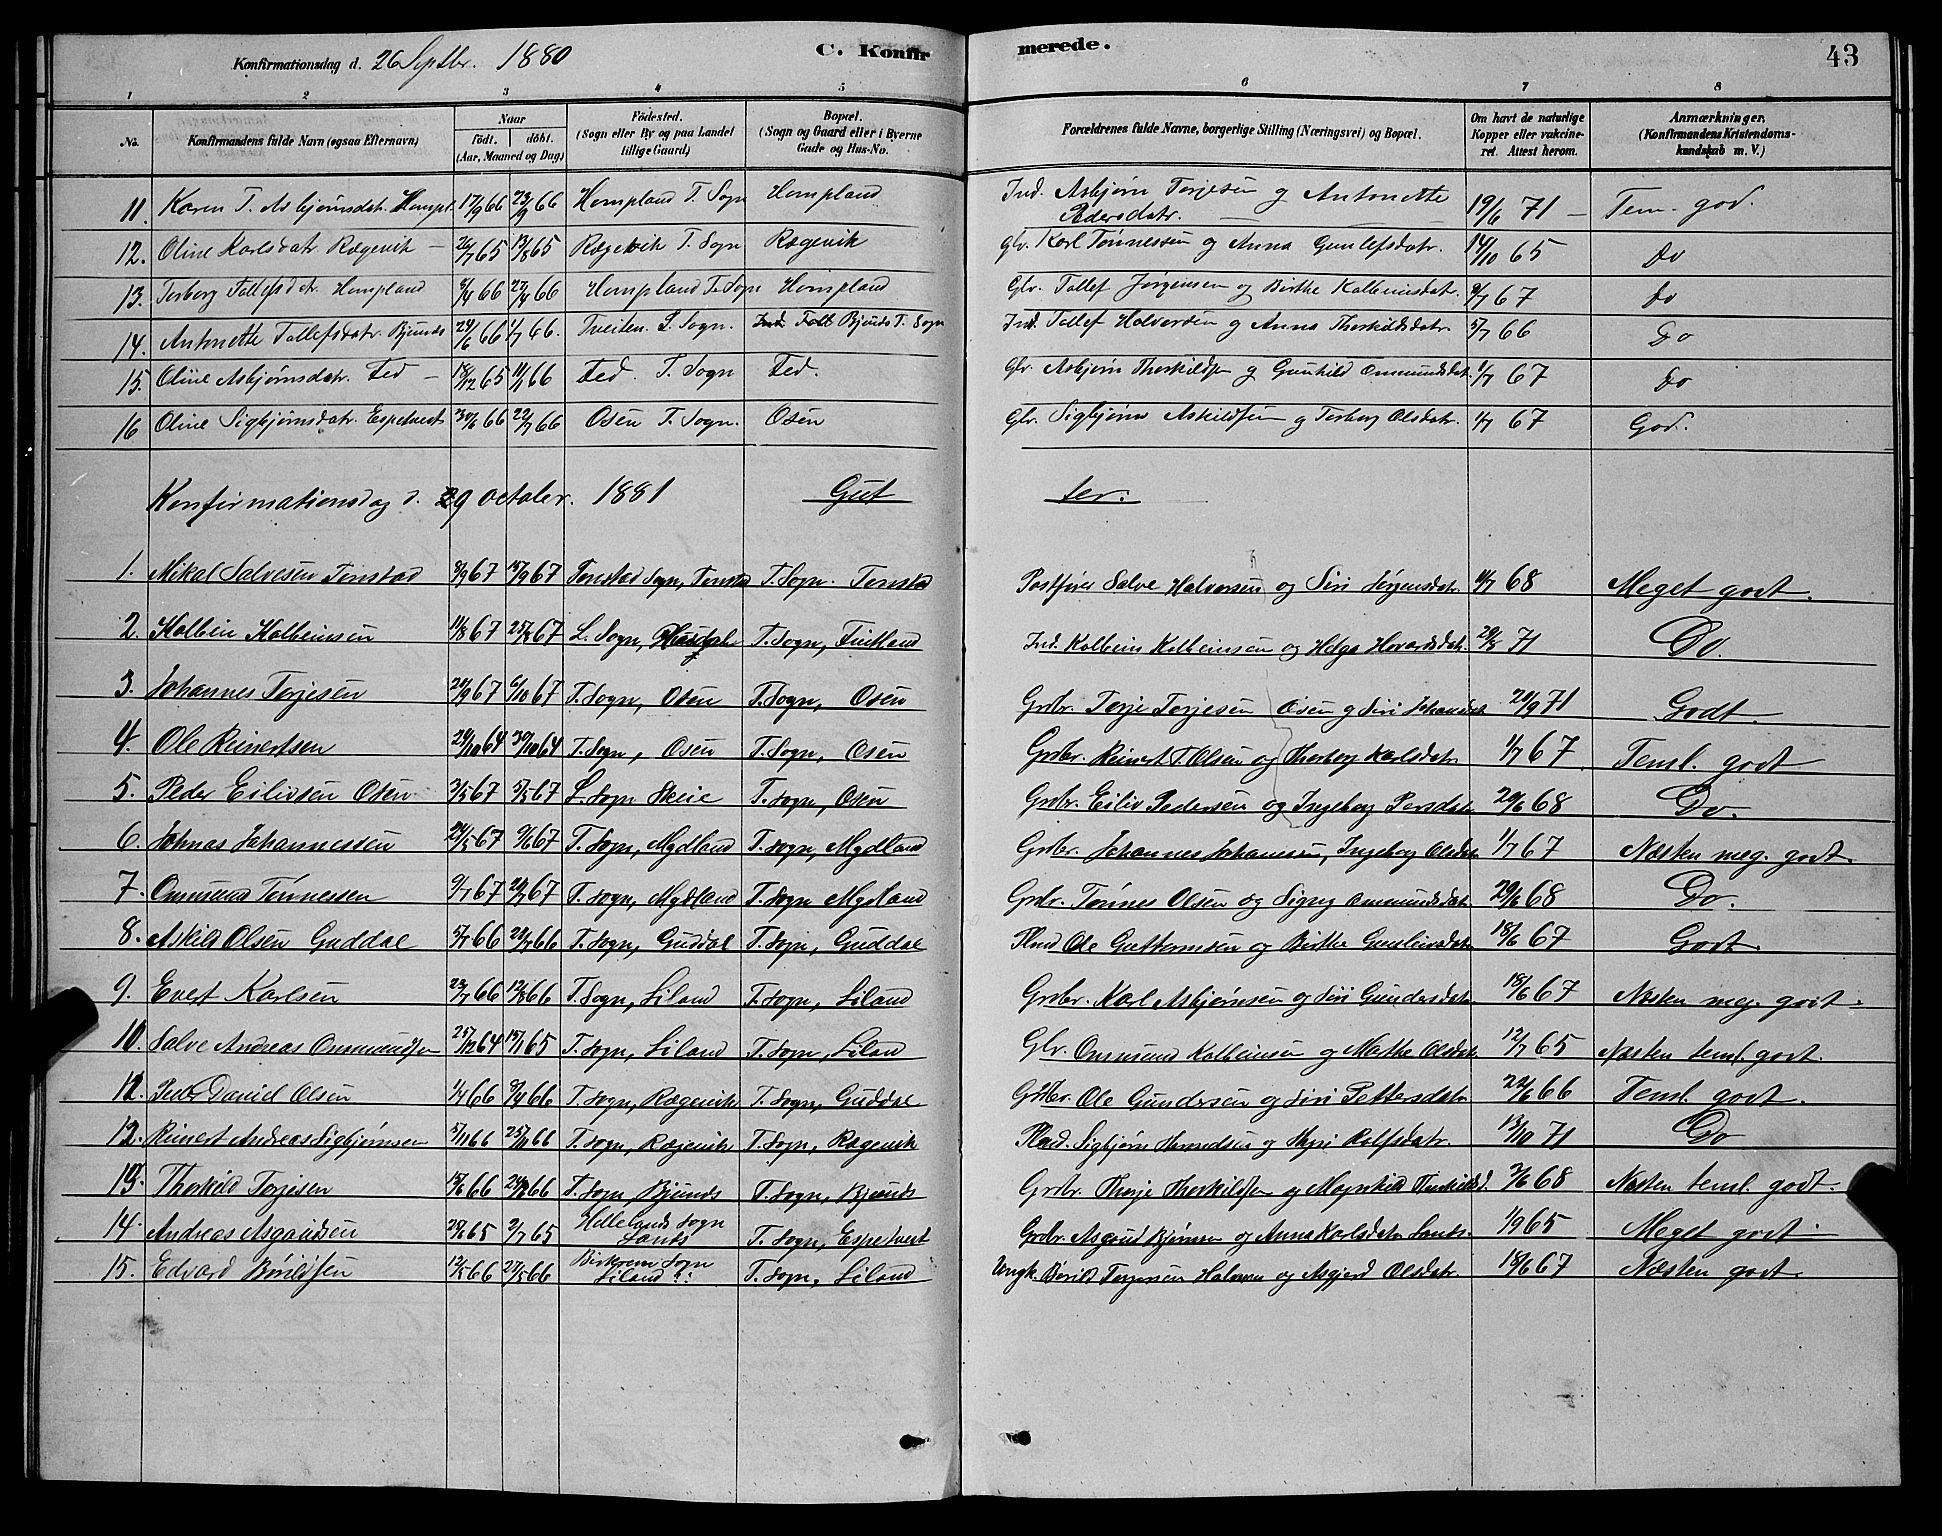 Konfirmationsdag d. 26 Septbr. 1880 C. Konfir merede. 43
1 2 3 4 5 6 7 8
No. Konfirmandens fulde Navn (ogsaa Efternavn) Naar født. døbt. (Aar, Maaned og Dag) Fødested. (Sogn eller By og paa Landet tillige Gaard.) Bopæl. (Sogn og Gaard eller i Byerne Gade og Hus-No. Forældrenes fulde Navne, borgerlige Stilling (Næringsvei) og Bopæl. Om havt de naturlige Kopper eller vakcineret. Attest herom. Anmærkninger. (Konfirmandens Kristendomskundskab m. V.)
11. Karen T. Asbjørnsdatr. Hompl. 17/9 66 23/9 66 Hompland T. Sogn Hompland Ind. Asbjørn Terjesen og Antonette Pedersdatr. 19/6 71 – Tem. god.
12. Oline Karlsdatr. Rægevik – 26/7 65 13/8 65 Rægevik T. Sogn Rægevik Glv. Karl Tønnessen og Anna Gunlefsdatr. 14/10 65 Do
13. Terborg Tallefsdtr. Hompland 8/4 66 22/4 66 Hompland T. Sogn Hompland Glv. Tallef Jørgensen og Birthe Kolbeinsdatr. 9/7 67 Do
14. Antonette Tallefsdatr. Bjunds 24/6 66 1/7 66. Tveiten L. Sogn. Bjunds T. Sogn Ind. Tallef Halvorsen og Anna Thorkildsdatr. 5/7 66 Do
15. Oline Asbjørnsdatr. Fed – 18/12 65 11/1 66 Fed. T. Sogn Fed. Glv. Asbjørn Thorkilds. og Gunhild Ommundsdat. 1/7 67 Do
16 Oline Sigbjørnsdatr. Espetvest 30/6 66 22/7 66 Osen T. Sogn. Osen Glv. Sigbjørn Askildsen og Terborg Olsdatr. 1/7 67 God.
Konfirmationsdag d. 29 october. 1881 Gut ter:
1. Mikal Salvesen Tonstad 8/9 67 15/9 67 Tonstad Sogn, Tonstad T. Sogn. Tonstad Postfører Salve Halvorsen og Siri Jørgensdatr. 11/7 68 Meget godt.
2. Kolbein Kolbeinsen 11/8 67 25/8 67 L. Sogn, T. Sogn, Fintland Ind. Kolbein Kolbeinsen og Helga Hovardsdatr. 71 Do.
3. Johannes Terjesen 20/9 67 6/10 67 T. Sogn, Osen T. Sogn, Osen Grdbr. Terje Terjesen Osen og Siri Johansdat 20/9 71 Godt.
4. Ole Reinertsen 24/10 64 30/10 64 T. Sogn, Osen T. Sogn, Osen Grdbr. Reinert T. Olsen og Thorborg Karlsdatr 1/7 67. Teml. godt
5. Peder Eilivsen Osen 67 67 L. Sogn Skeie T. Sogn, Osen Grdbr. Eiliv Pedersen og Ingeborg Persdatr 29/6 68 Do.
6. Johnas Johannessen 24/5 67 9/6 67 T. Sogn, Mydland T. Sogn, Mydland Grdbr. Johannes Johansen, Ingeborg Olsdatr 1/7 67 Næsten meg. godt.
7. Ommund Tønnessen 9/7 67 67 T. Sogn, Mydland T. Sogn Mydland Grdbr. Tønnes Olsen og Signy Ommundsdatr 29/6 68 Do.
8. Askild Olsen Guddal 5/7 66 66 T. Sogn, Guddal T. Sogn, Guddal Plmd Ole Guthormsen og Birthe Gunleivsdatr 18/6 67 Godt.
9. Evert Karlsen 23/7 66 12/8 66 T. Sogn, Liland T. Sogn, Liland Grdbr. Karl Asbjørnsen og Siri Gundersdatr 18/6 67 Næsten meg. godt.
10. Salve Andreas Ommundsen 25/12 64 15/1 65 T. Sogn, Liland T. Sogn, Liland Glv. Ommund Kolbeinsen og Marthe Olsdatr. 12/7 65 Næsten teml. godt.
12. Peder David Olsen 1/4 66 8/4 66 T. Sogn, Rægevik T. Sogn, Guddal Grdbr. Ole Gundersen og Siri Pettersdatr 22/6 66 Teml. godt.
12. Reinert Andreas Sigbjørnsen 5/11 66 25/11 66 T. Sogn, Rægevik T. Sogn, Rægevik Plmd. Sigbjørn og Rolfsdatr. 13/10 71 Do
13. Thorkild Terjesen 15/6 66 66 T. Sogn, Bjunds T. Sogn, Bjunds Grdbr. Therje Thorkildsen og Magnhild Thorkildsd. 3/6 68 Næsten teml. godt.
14. Andreas Asgautsen 65 2/7 65 Hellelands Sogn Lands T. Sogn, Espetvest Grdbr. Asgaut Bjørnsen og Anna Karlsdatr Lands. 1/9 65 Meget godt.
15. Edvard Børildsen 12/5 66 27/5 66 Birkrem Sogn Liland T. Sogn, Liland Ungk. Børild Terjesen og Asgjerd Olsdatr. 18/6 67 Næsten godt.